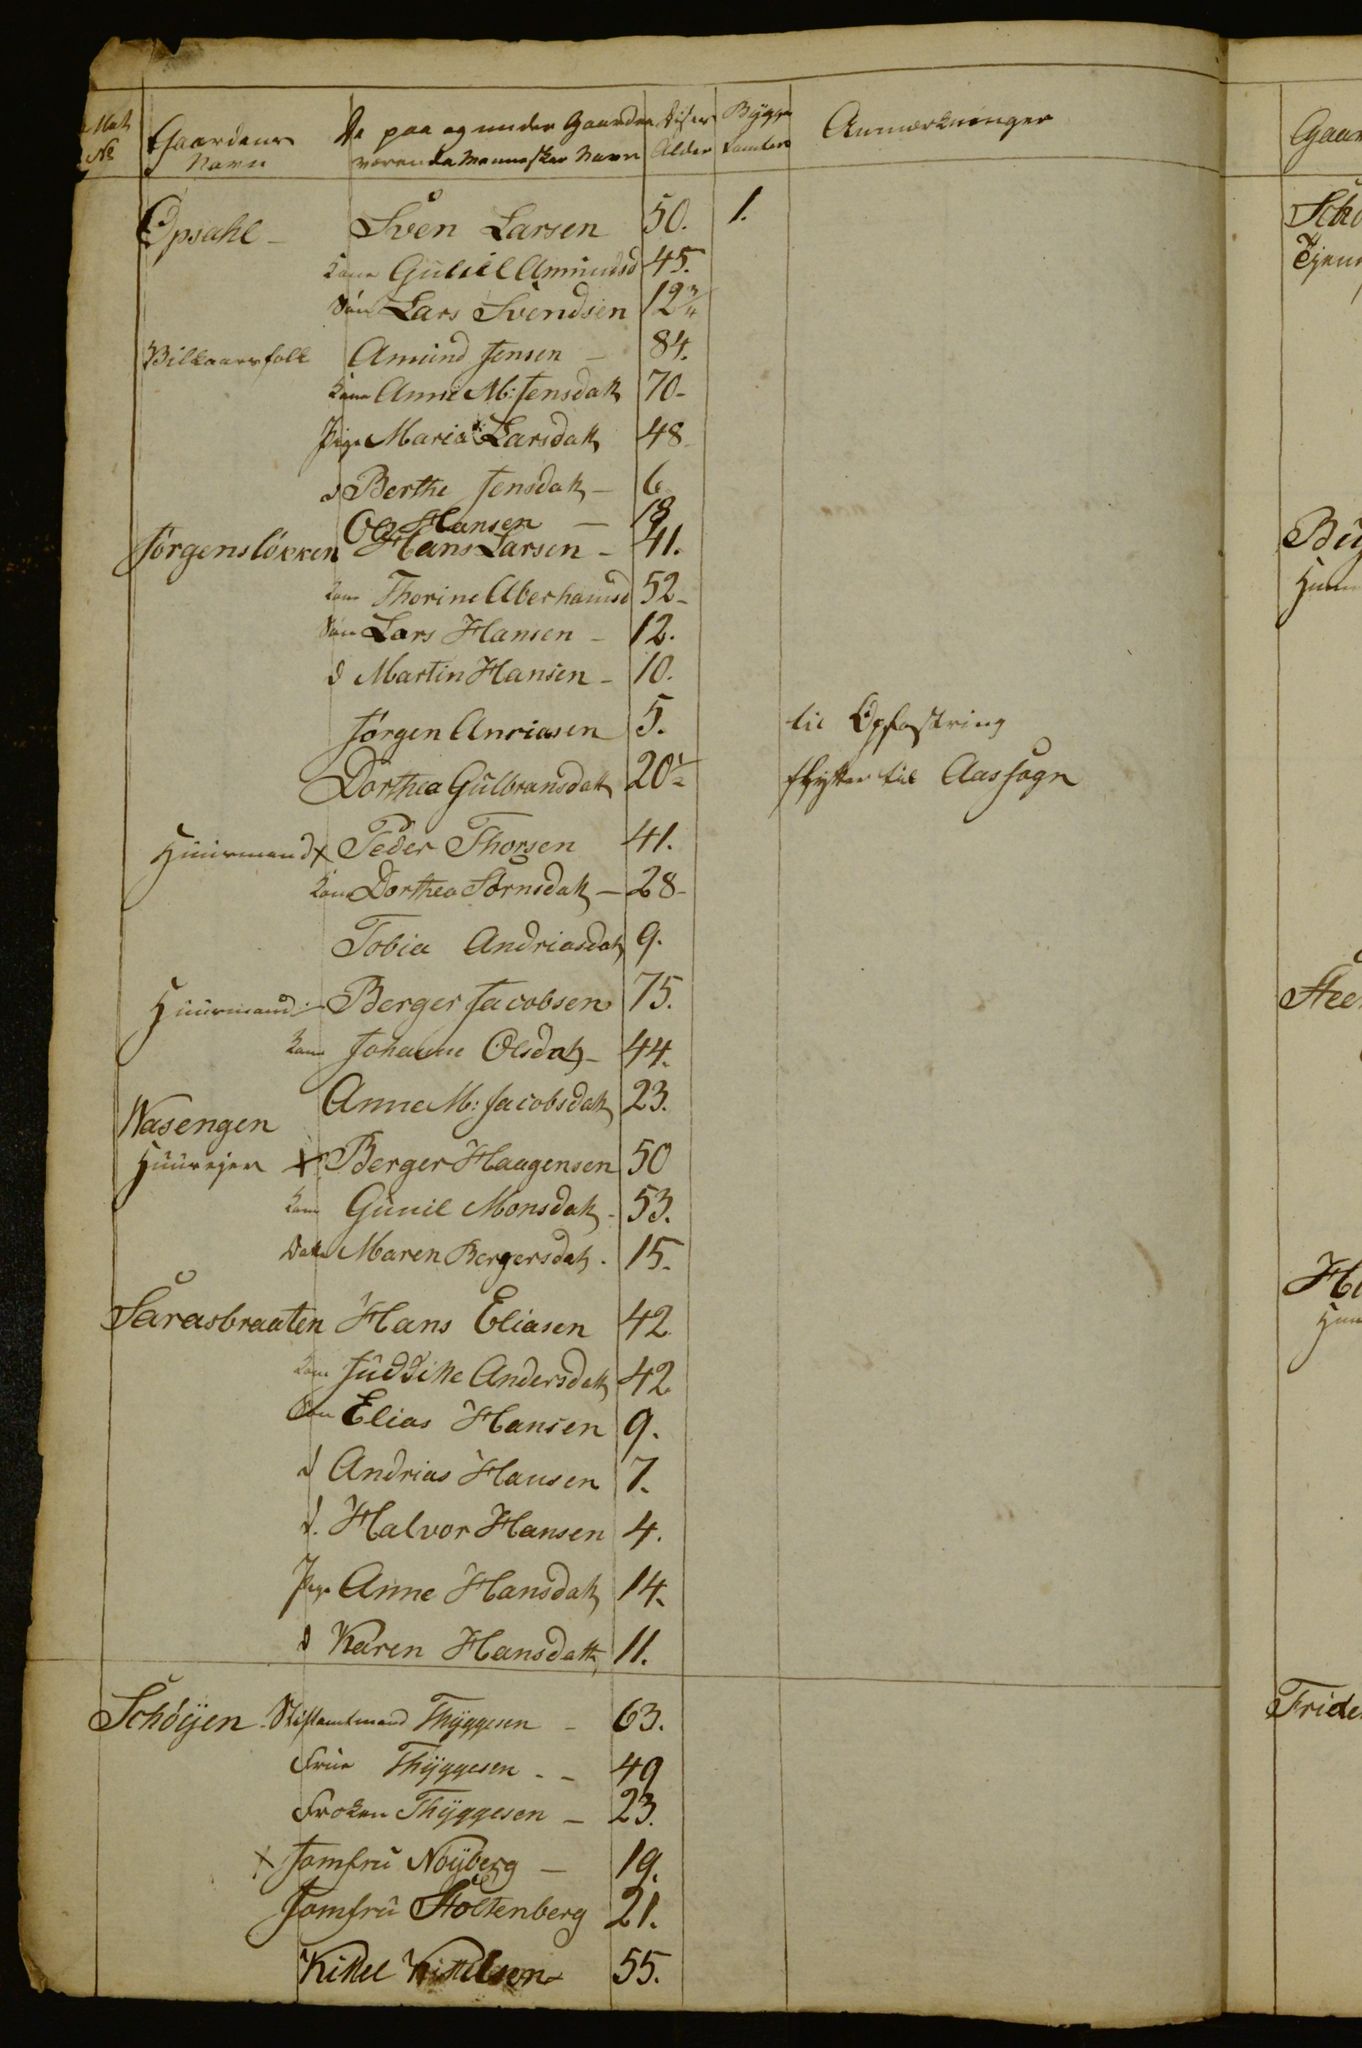 Mat Gaardens De paa og under Gaarden Disses Bygge Anmærkninger
No Navn værende Menneskers Navn Alder
Opsahl - Sven Larsen 50. 1.
kone Guliil Amundsd 45.
Søn Lars Svendsen 12 3/4
Vilkaarsfolk Amund Jensen - 84.
kone Anne M: Jensdatt 70 -
Pige Maria Larsdatt 48 -
d Berthe Jensdatt - 6
Ole Hansen - 18
Jørgensløkken Hans Larsen - 41.
kone Thorine Aberhamsd 52 -
Søn Lars Hansen - 12.
d Martin Hansen - 10.
Jørgen Anriasen 5. til Opfostring
Dorthea Gulbransdatt 20 1/2 flytter til Aas sogn
Huusmand x Peder Thorsen 41.
kone Dorthea Sørnsdatt - 28 -
Tobia Andriasdatt 9.
Huusmand - Berger Jacobsen 75.
kone Johanne Olsdatt - 44.
Anne M: Jacobsdatt 23.
Nasengen
Huusejer x Berger Haagensen 50
kone Gunil Monsdatt - 53.
Datter Maren Bergersdatt . 15.
Sarasbraaten Hans Eliasen 42
kone Juditte Andersdatt 42.
Søn Elias Hansen 9.
d Andrias Hansen 7.
d. Halvor Hansen 4.
Pige Anne Hansdatt 14.
d Karen Hansdatt 11.
Schöyen - Stiftamtmand Thÿggesen - 63.
Frue Thÿggesen - - 49
Frøken Thÿggesen - 23.
x Jomfru Nøÿberg - 19.
Jomfru Stoltenberg 21.
Kittel Kittelsen 55.
Gaar
Tjen
Huus
Stee
Fride